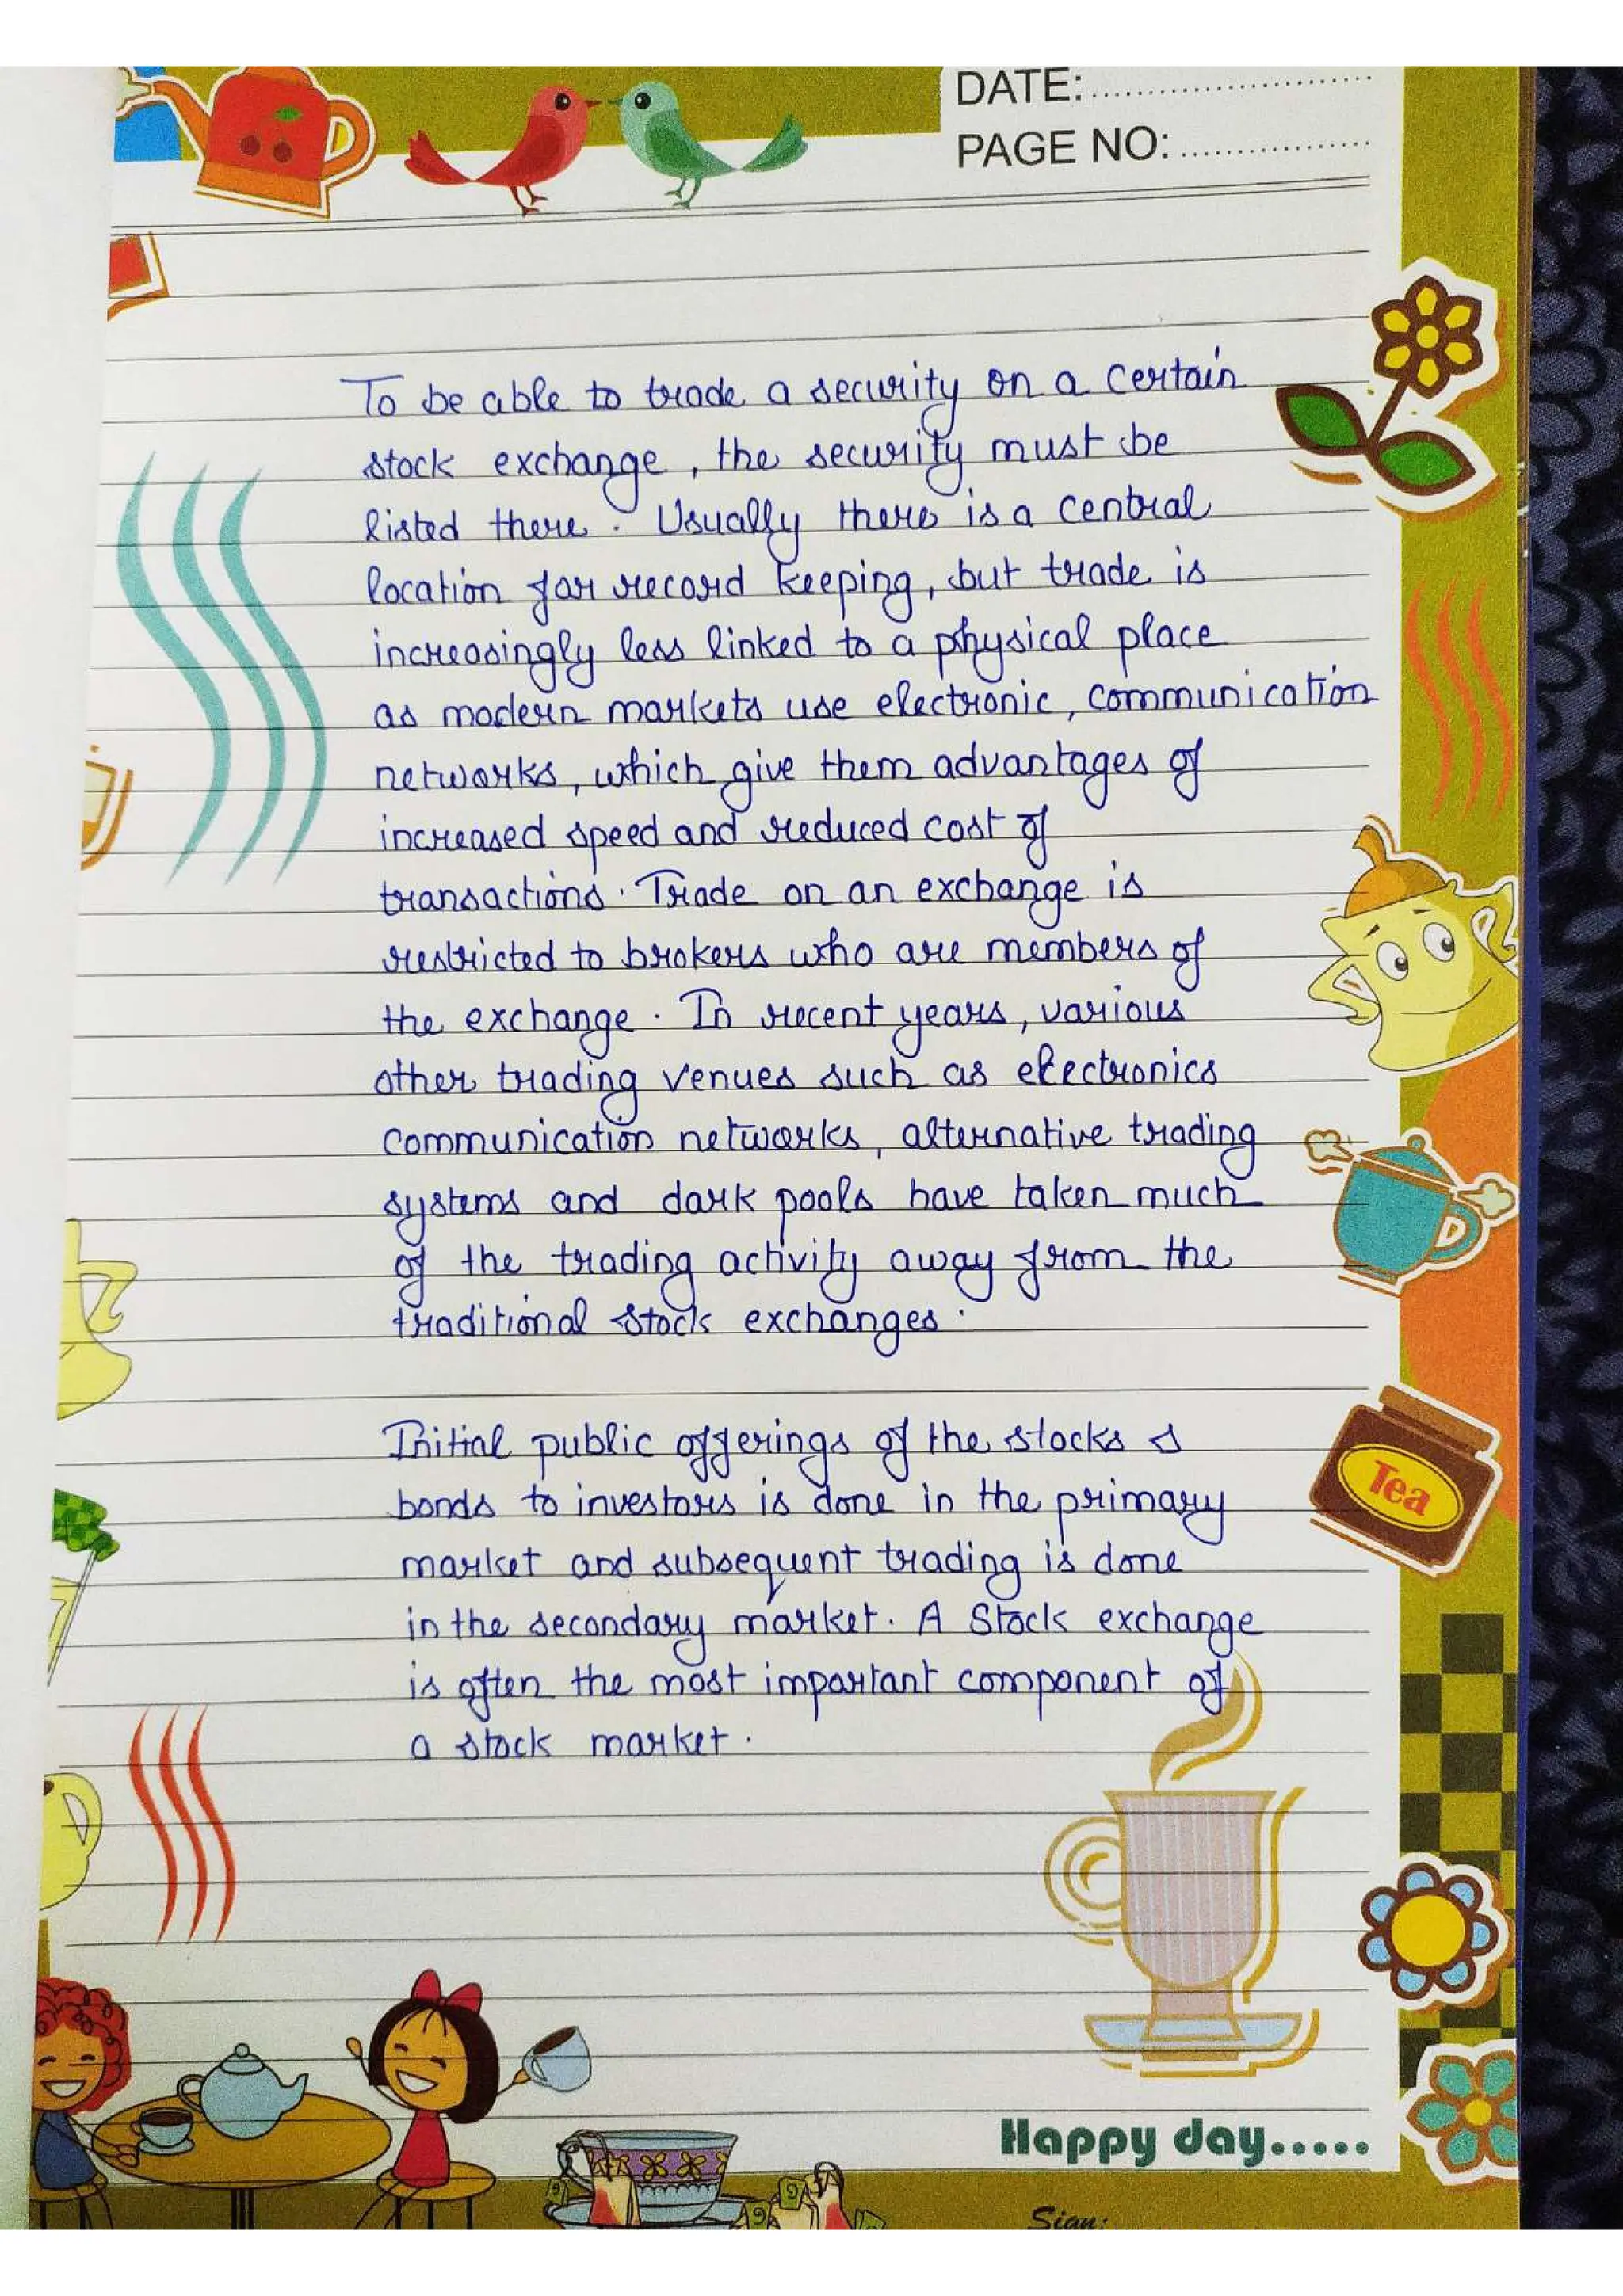 DATE:
PAGE NO:
To be able to trade a security on a certain
stock exchange, the security must be
listed there. Usually there is a central
location for record keeping, but trade is
increasingly less linked to a physical place
as modern markets use electronic, communication
networks, which give them advantages of
increased speed and reduced cost of
transactions. Trade on an exchange is
restricted to brokers who are members of
the exchange. In recent years, various
other trading venues such as electronics
communication networks, alternative trading
systems and dark pools have taken much
of the trading activity away from the
traditional stock exchanges.
Initial public offerings of the stocks s
bonds to investors is done in the primary
market and subsequent trading is done
in the secondary market. A Stock exchange
is often the most important component of
a stock market.
Tea
Happy day.....
Sign: